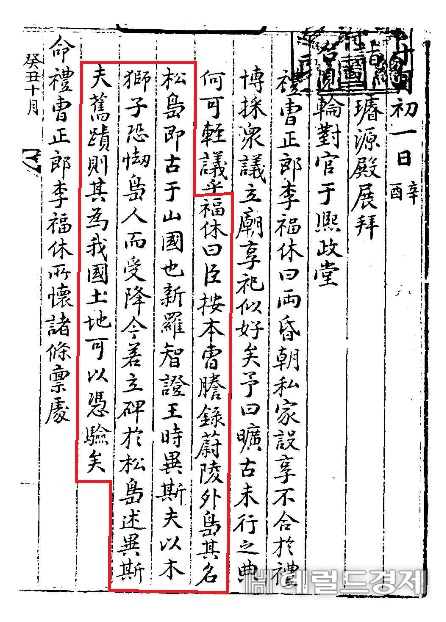 十月
初一日辛酉
璿源殿展拜
輪對官于熙政堂
禮曹正郎李福休曰兩昏朝私家設享不合於禮
博採衆議立廟享祀似好矣予曰曠古未行之典
何可輕議乎福休曰臣按本曹謄錄蔚陵外島其名
松島即古于山國也新羅智證王時異斯夫以木
獅子恐㤼島人而受降今若立碑於松島述異斯
夫舊蹟則其爲我國土地可以憑驗矣
命禮曹正郎李福休所懷諸條稟處
癸丑十月
헤럴드경제